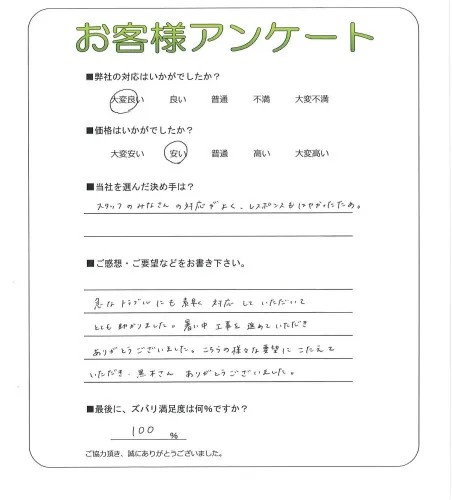 お客様アンケート
■弊社の対応はいかがでしたか？
大変良い 良い 普通 不満 大変不満
■価格はいかがでしたか？
大変安い 安い 普通 高い 大変高い
■当社を選んだ決め手は？
スタッフのみなさんの対応がよく、レスポンスもはやかったため。
■ご感想・ご要望などをお書き下さい。
急なトラブルにも素早く対応していただいて
とても助かりました。暑い中工事を進めていただき
ありがとうございました。こちらの様々な要望にこたえて
いただき、黒木さんありがとうございました。
■最後に、ズバリ満足度は何%ですか？
100 %
ご協力頂き、誠にありがとうございました。